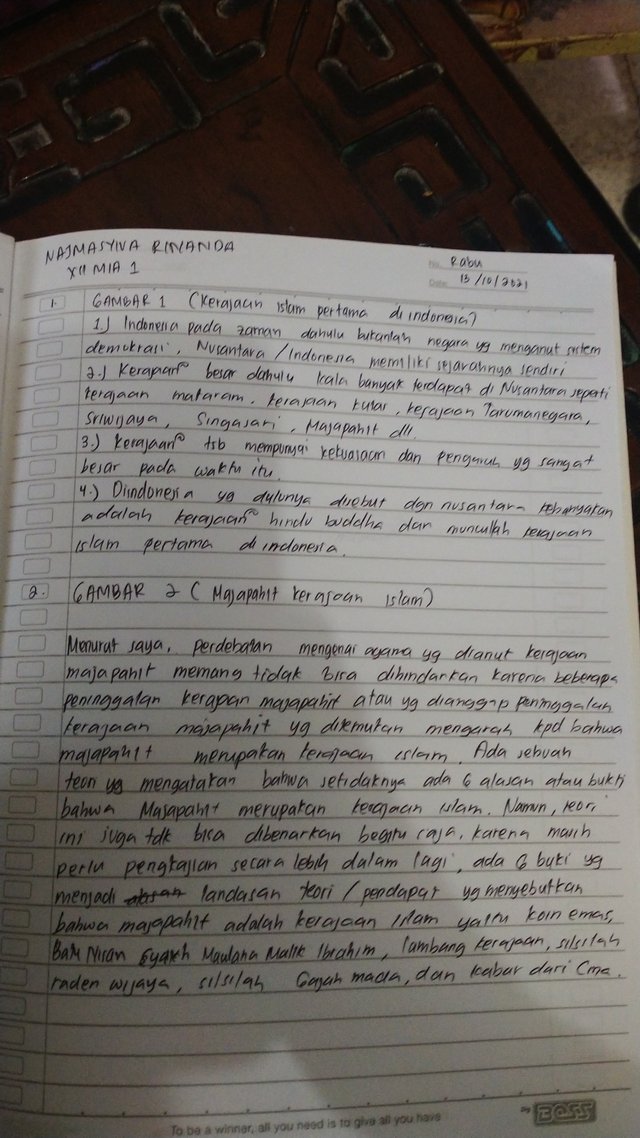 NAJMASYIVA RINANDA
XII MIA 1
No. Rabu
Date. 13/10/2021
1. GAMBAR 1 (Kerajaan islam pertama di indonesia)
1.) Indonesia pada zaman dahulu bukanlah negara yg menganut sistem
demokrasi, Nusantara / Indonesia memiliki sejarahnya sendiri
2.) Kerajaan² besar dahulu kala banyak terdapat di Nusantara seperti
kerajaan mataram, kerajaan kutai, kerajaan Tarumanegara,
Sriwijaya, Singasari, Majapahit dll.
3.) Kerajaan² tsb mempunyai kekuasaan dan pengaruh yg sangat
besar pada waktu itu.
4.) Diindonesia yg dulunya disebut dgn nusantara kebanyakan
adalah kerajaan² hindu buddha dan muncullah kerajaan
islam pertama di indonesia.
2. GAMBAR 2 (Majapahit kerajaan islam)
Menurut saya, perdebatan mengenai agama yg dianut kerajaan
majapahit memang tidak bisa dihindarkan karena beberapa
peninggalan kerajaan majapahit atau yg dianggap peninggalan
kerajaan majapahit yg ditemukan mengarah kpd bahwa
majapahit merupakan kerajaan islam. Ada sebuah
teori yg mengatakan bahwa setidaknya ada 6 alasan atau bukti
bahwa Majapahit merupakan kerajaan islam. Namun, teori
ini juga tdk bisa dibenarkan begitu saja, karena masih
perlu pengkajian secara lebih dalam lagi, ada 6 bukti yg
menjadi landasan teori / pendapat yg menyebutkan
bahwa majapahit adalah kerajaan islam yaitu koin emas,
Batu Nisan Syaikh Maulana Malik Ibrahim, lambang kerajaan, silsilah
raden wijaya, silsilah Gajah mada, dan kabar dari Cina.
To be a winner, all you need is to give all you have
BOSS